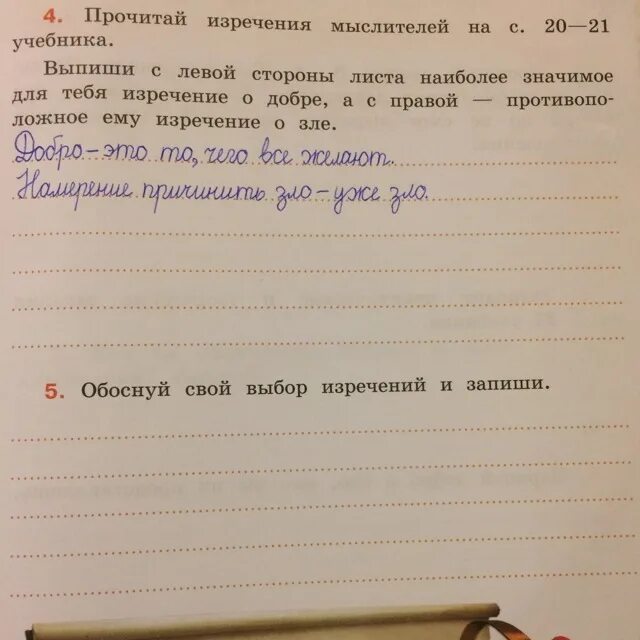 4. Прочитай изречения мыслителей на с. 20—21
учебника.
Выпиши с левой стороны листа наиболее значимое
для тебя изречение о добре, а с правой — противопо-
ложное ему изречение о зле.
Добро – это то, чего все желают.
Намерение причинить зло – уже зло.
5. Обоснуй свой выбор изречений и запиши.